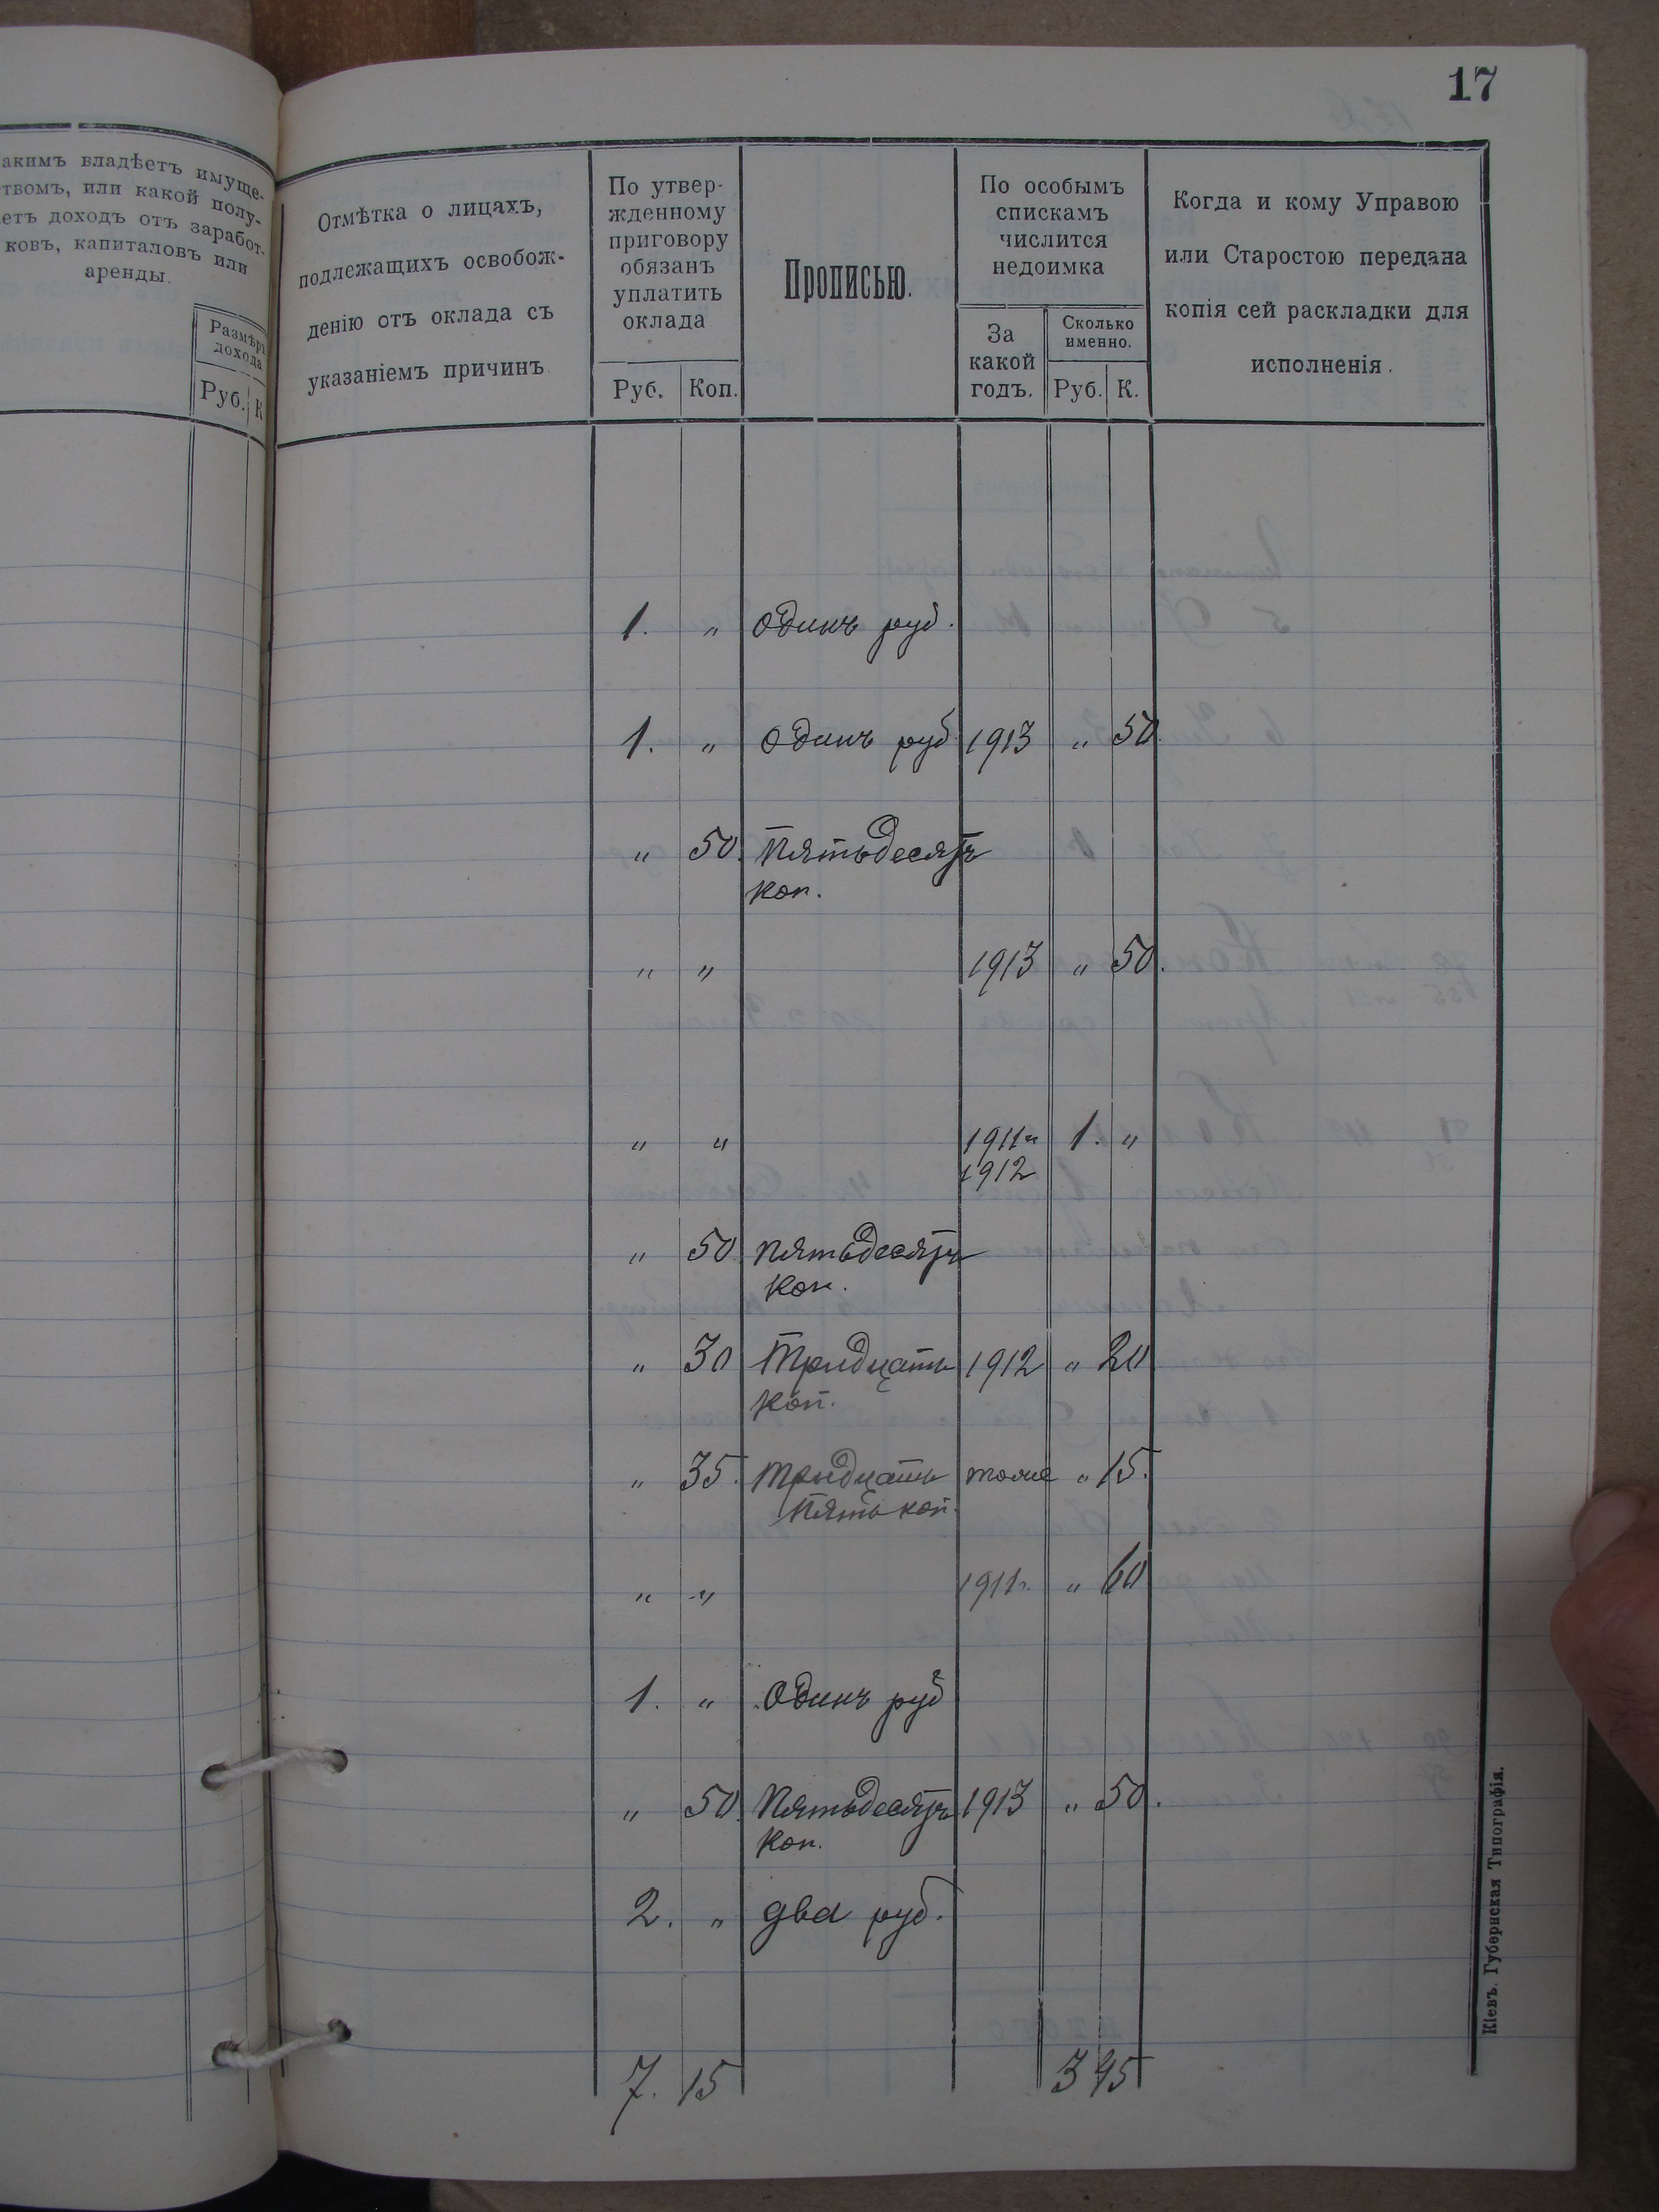 17
акимъ владѣетъ имуще-
твомъ, или какой полу-
етъ доходъ отъ заработ-
ковъ, капиталовъ или
аренды.
Размѣръ
дохода
Руб. К
Отмѣтка о лицахъ,
подлежащихъ освобож-
денію отъ оклада съ
указаніемъ причинъ.
По утвер-
жденному
приговору
обязанъ
уплатить
оклада
Руб. Коп.
Прописью.
По особымъ
спискамъ
числится
недоимка
За
какой
годъ.
Сколько
именно.
Руб. К.
Когда и кому Управою
или Старостою передана
копія сей раскладки для
исполненія.
1. " одинъ руб.
1. " одинъ руб. 1913 " 50.
" 50. Пятьдесятъ
коп.
" " 1913 " 50.
" " 1911 и 1. "
1912
" 50. пятьдесятъ
коп.
" 30 Тридцать 1912 " 20
коп.
" 35. тридцать тоже " 15.
пять коп.
" " 1911 г. " 60
1. " Одинъ руб
" 50. Пятьдесятъ 1913 " 50.
коп.
2. " два руб.
7. 15 3 95
Кіевъ. Губернская Типографія.